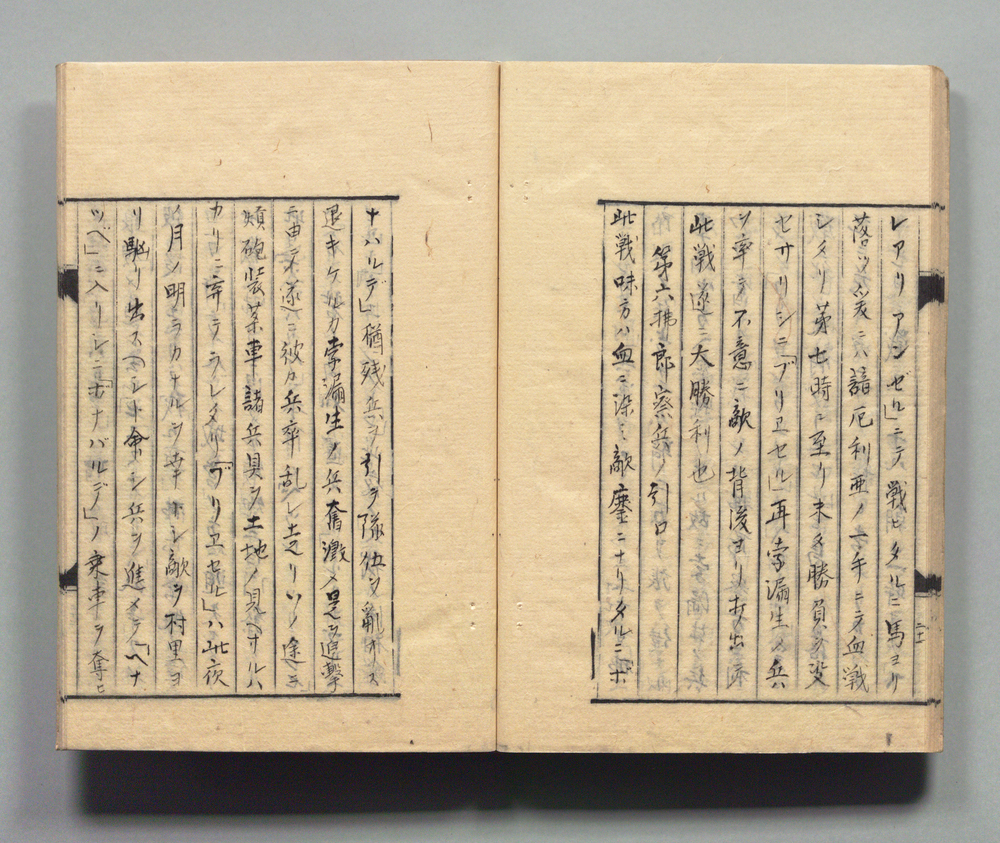 レアリアンゼル」ニテ戦ヒタルニ馬ヨリ
落ツ爰ニハ諳厄利亜ノ手ニテ血戦
シタリ第七時ニ至リ未タ勝負ヲ決
セサリシニ「ブリユセル」再孛漏生ノ兵
ヲ率テ不意ニ敵ノ背後ヨリ打出
此戦遂ニ大勝利也
第六拂郎察兵ノ引口
此戦味方ハ血ニ染ミ敵鏖ニナリタルニ「ボ
ナハルデ」猶残兵ヲ引テ隊伍ヲ亂サス
退キケルカ孛漏生ノ兵奮激メ是ヲ追撃
テ遂ニ彼カ兵卒乱レ走リソノ途ニ
頻砲装薬車諸兵具ヲ土地ノ見ヘサルハ
カリニ弃テラレタリ「ブリユセル」ハ此夜
ノ月ノ明ラカナルヲ幸トシ敵ヲ村里ヨ
リ駆リ出スヘシト命シ兵ヲ進メテ「ヘナ
ツペ」ニ入リシニ「ボナバルデ」ノ乗車ヲ奪ヒ